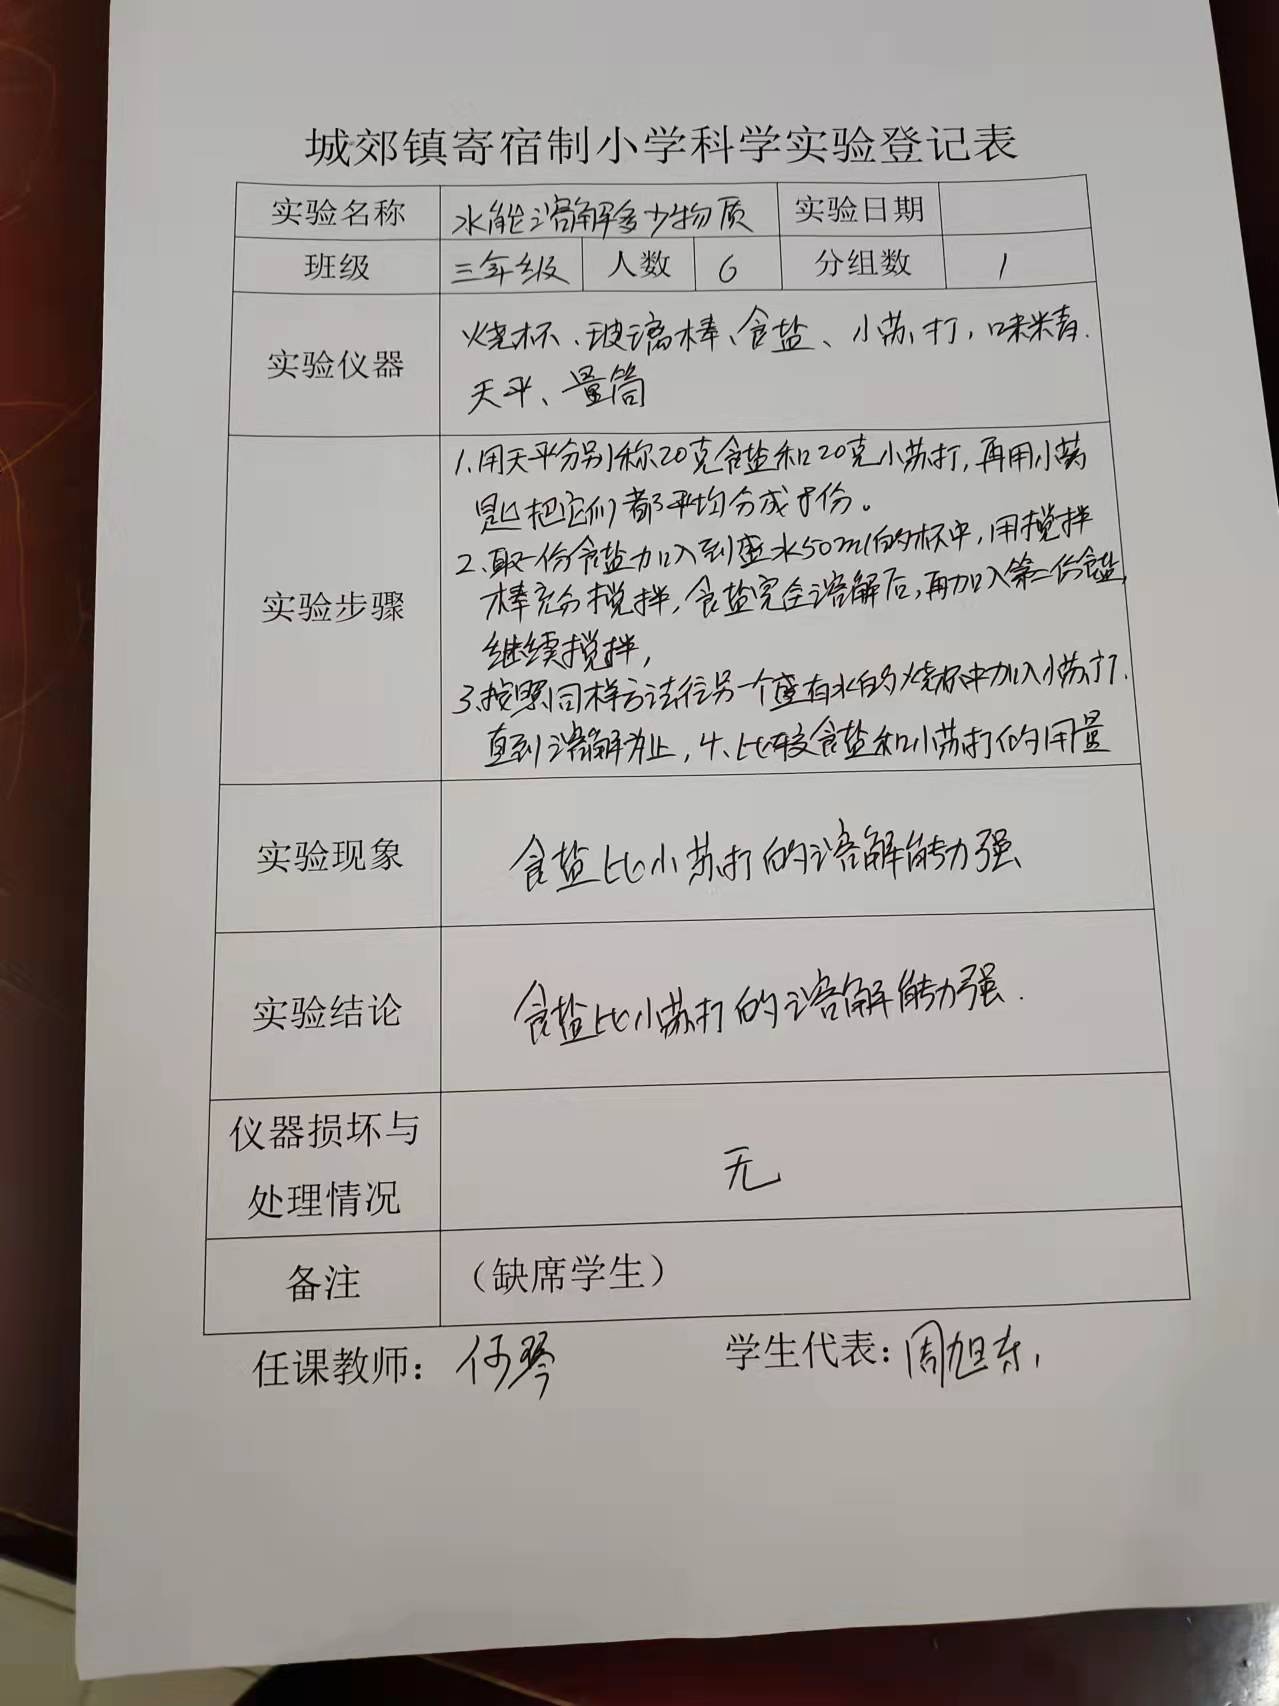 城郊镇寄宿制小学科学实验登记表
实验名称 水能溶解多少物质 实验日期
班级 三年级 人数 6 分组数 1
实验仪器
烧杯、玻璃棒、食盐、小苏打,味精.
天平、量筒
实验步骤
1.用天平分别称20克食盐和20克小苏打,再用小药
匙把它们都平均分成8份。
2、取一份食盐加入到盛水50ml的杯中,用搅拌
棒充分搅拌,食盐完全溶解后,再加入第二份食盐,
继续搅拌,
3、按照同样方法往另一个盛有水的烧杯中加入小苏打.
直到溶解为止,4、比较食盐和小苏打的用量
实验现象 食盐比小苏打的溶解能力强
实验结论 食盐比小苏打的溶解能力强.
仪器损坏与
处理情况
无
备注 (缺席学生)
任课教师: 何琴 学生代表: 周旭东